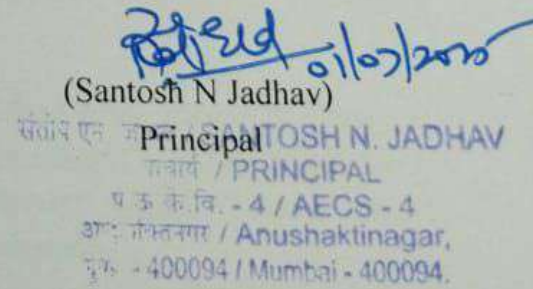 01/07/2025
(Santosh N Jadhav)
Principal
संतोष एन / SANTOSH N. JADHAV
/ PRINCIPAL
प ऊ के.वि. - 4 / AECS - 4
/ Anushaktinagar,
- 400094 / Mumbai - 400094.